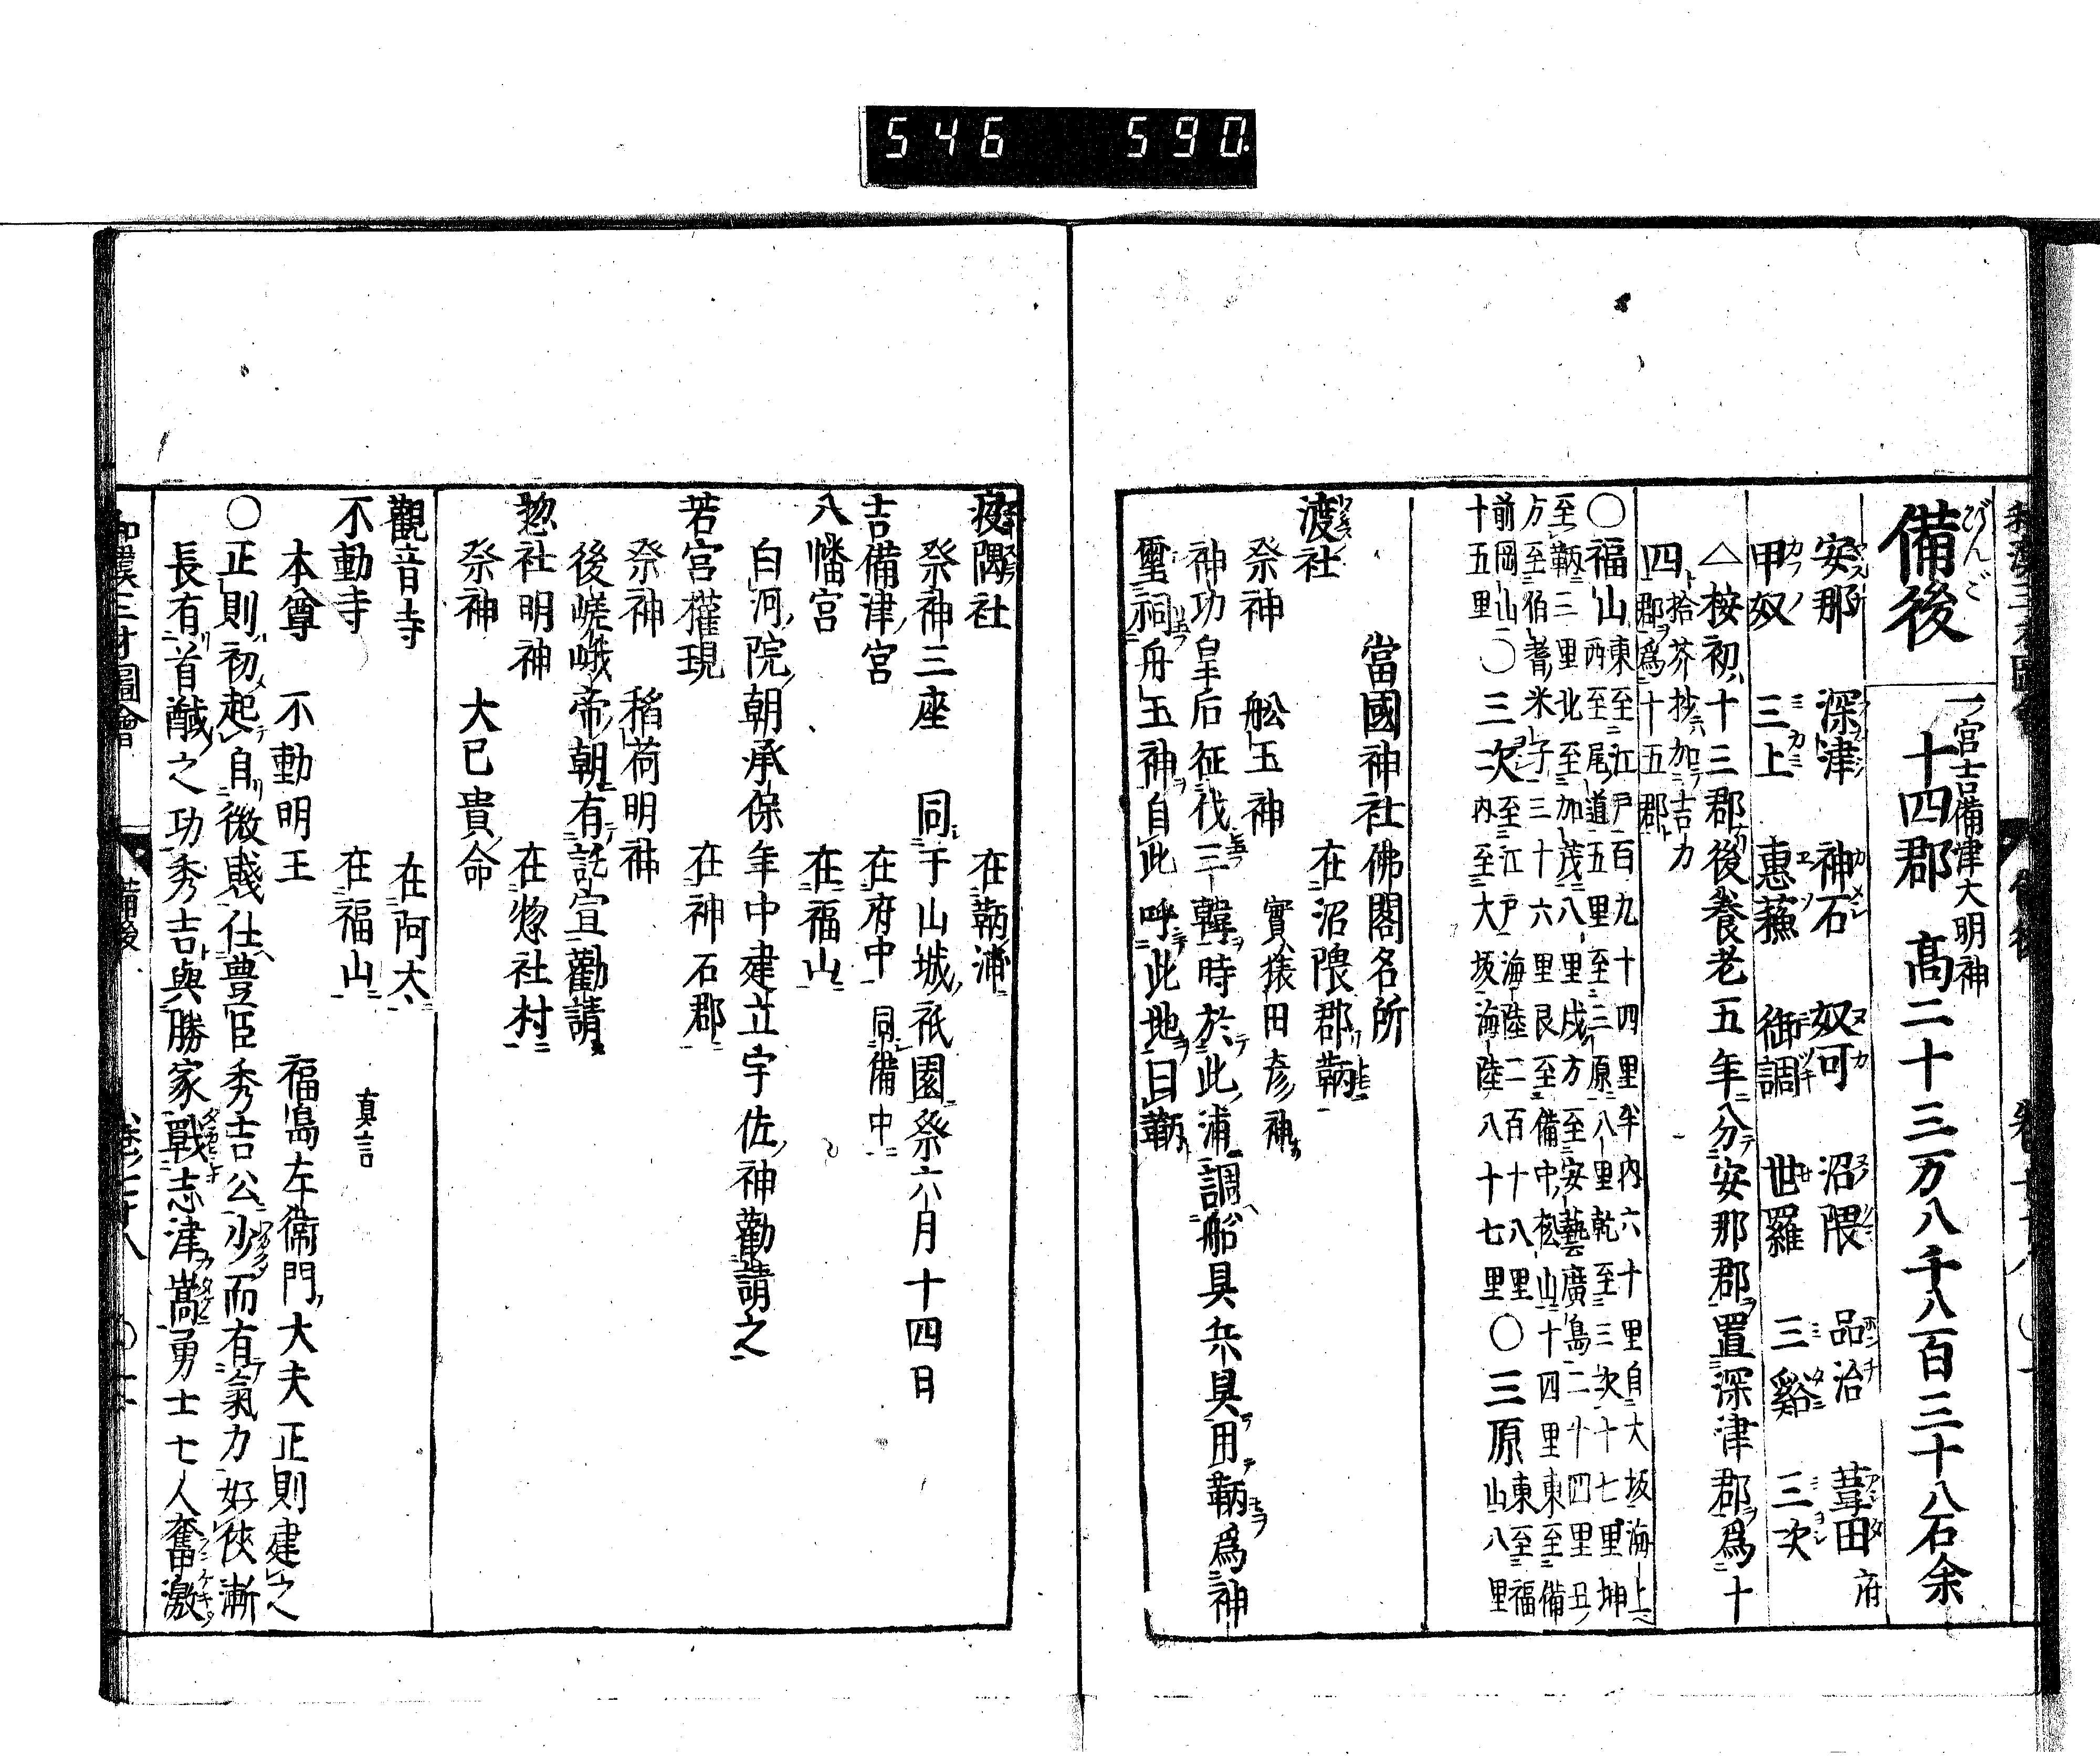 546 590
備後
一宮吉備津大明神
十四郡 髙二十三万八千八百三十八石余
安那 深津 神石 奴可 沼隈 品治 葦田府
甲奴 三上 惠蘓 御調 世羅 三谿 三次
△按初十三郡後養老五年分安那郡置深津郡爲十
四拾芥抄加吉力郡爲十五郡
○福山東至江戸百九十四里半内六十里自大坂海上坤
西至尾道五里至三原八里乾至三次十七里
至鞆三里北至加茂八里戌方至安藝廣島二十四里丑
方至伯耆米子三十六里艮至備中松山十四里東至備
前岡山十五里○三次至江戸海陸二百十八里
内至大坂海陸八十七里○三原東至福山八里
當國神社佛閣名所
渡社 在沼隈郡鞆
祭神 舩玉神 實猿田彦神
神功皇后征伐三韓時於此浦調船具兵具用鞆爲神
璽祠舟玉神自此呼此地曰鞆
疫隅社 在鞆浦
祭神三座 同于山城祇園祭六月十四日
吉備津宮 在府中 同備中
八幡宮 在福山
白河院朝承保年中建立宇佐神勸請之
若宮權現 在神石郡
祭神 稻荷明神
後嵯峨帝朝有託宣勸請
惣社明神 在惣社村
祭神 大已貴命
觀音寺 在阿大
不動寺 在福山 真言
本尊 不動明王 福島左衞門大夫正則建之
○正則初起自微賤仕豊臣秀吉公少而有氣力好俠漸
長有首馘之功秀吉與勝家戰志津嵩勇士七人奮激
和漢三才圖會 備後